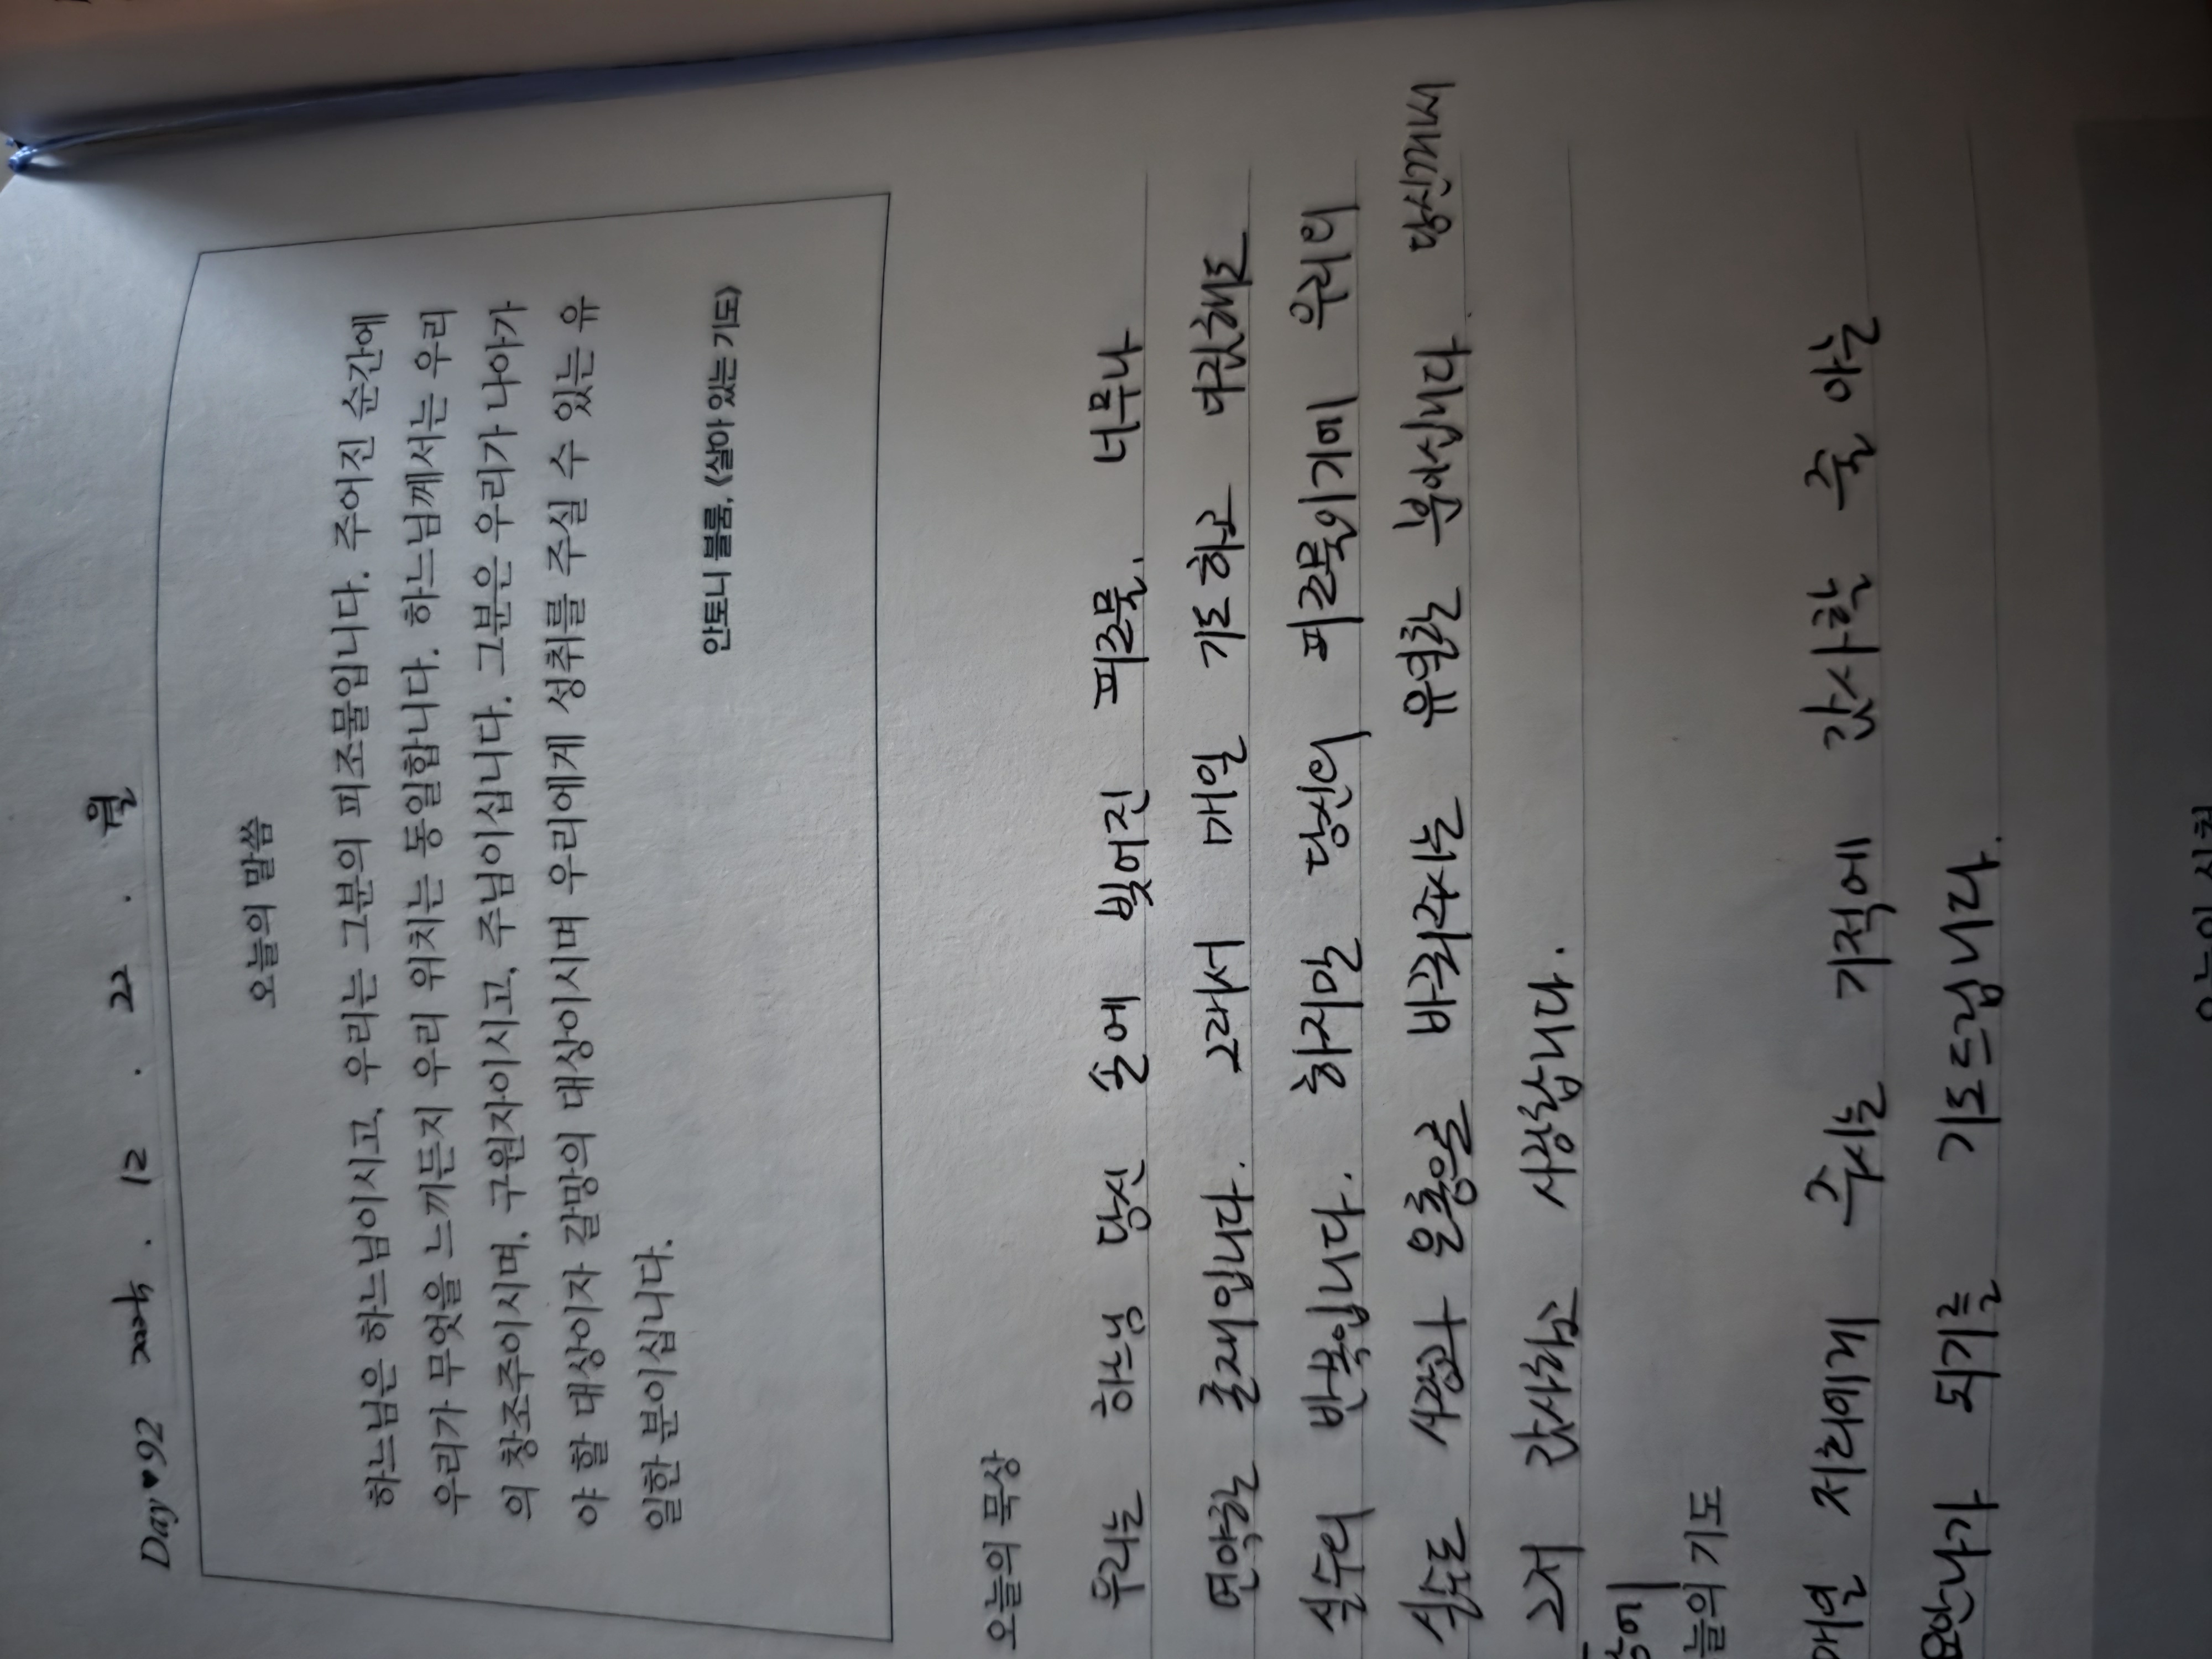 Day♥92 2025. 12. 22. 월
오늘의 말씀
하느님은 하느님이시고, 우리는 그분의 피조물입니다. 주어진 순간에
우리가 무엇을 느끼든지 우리 위치는 동일합니다. 하느님께서는 우리
의 창조주이시며, 구원자이시고, 주님이십니다. 그분은 우리가 나아가
야 할 대상이자 갈망의 대상이시며 우리에게 성취를 주실 수 있는 유
일한 분이십니다.
안토니 블룸, 《살아 있는 기도》
오늘의 묵상
우리는 하느님 당신 손에 빚어진 피조물. 너무나
연약한 존재입니다. 그래서 매일 기도하고 다짐해도
실수의 반복입니다. 하지만 당신의 피조물이기에 우리의
실수도 사랑과 은총으로 바꿔주시는 유일한 분이십니다. 당신께서
그저 감사하고 사랑합니다.
늘의 기도
매일 저희에게 주시는 기적에 감사할 줄 아는
되기를 기도드립니다.
오늘의 실천